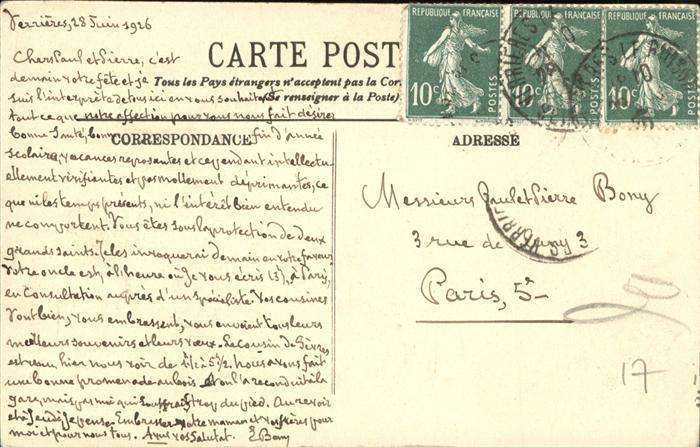 Verrières, 28 Juin 1926
Chers Paul et Pierre, c'est
demain votre fête et je
suis l'interprète de tous ici en vous souhaitant
tout ce que notre affection pour vous nous fait désirer
bonne santé, bonne fin d'année
scolaire, vacances reposantes et cependant intellectu-
ellement vivifiantes et pas mollement déprimantes, ce
que ni les temps présents, ni l'intérêt bien entendu
ne comportent. Vous êtes sous la protection de deux
grands saints. Je les invoquerai demain en votre faveur
Votre oncle est, à l'heure où je vous écris (3h), à Paris,
en Consultation auprès d'un spécialiste. Vos cousines
vont bien, vous embrassent, vous envoient tous leurs
meilleurs souvenirs et leurs vœux. Le cousin de Sèvres
est venu hier nous voir de 4h½ à 5h½. nous avons fait
une bonne promenade au bois et on l'a reconduit à la
gare, mais pas moi qui souffrais trop du pied. Au revoir
et à Jeudi je pense. Embrassez votre maman et vos frères pour
moi et pour nous tous. Avus vos salutat. E Bony
CARTE POST
Tous les Pays étrangers n'acceptent pas la Cor
(Se renseigner à la Poste)
CORRESPONDANCE
ADRESSE
RÉPUBLIQUE FRANÇAISE
10c
POSTES
RÉPUBLIQUE FRANÇAISE
10c
POSTES
RÉPUBLIQUE FRANÇAISE
10c
POSTES
Messieurs Paul et Pierre Bony
3 rue de Cluny 3
Paris, 5e
17